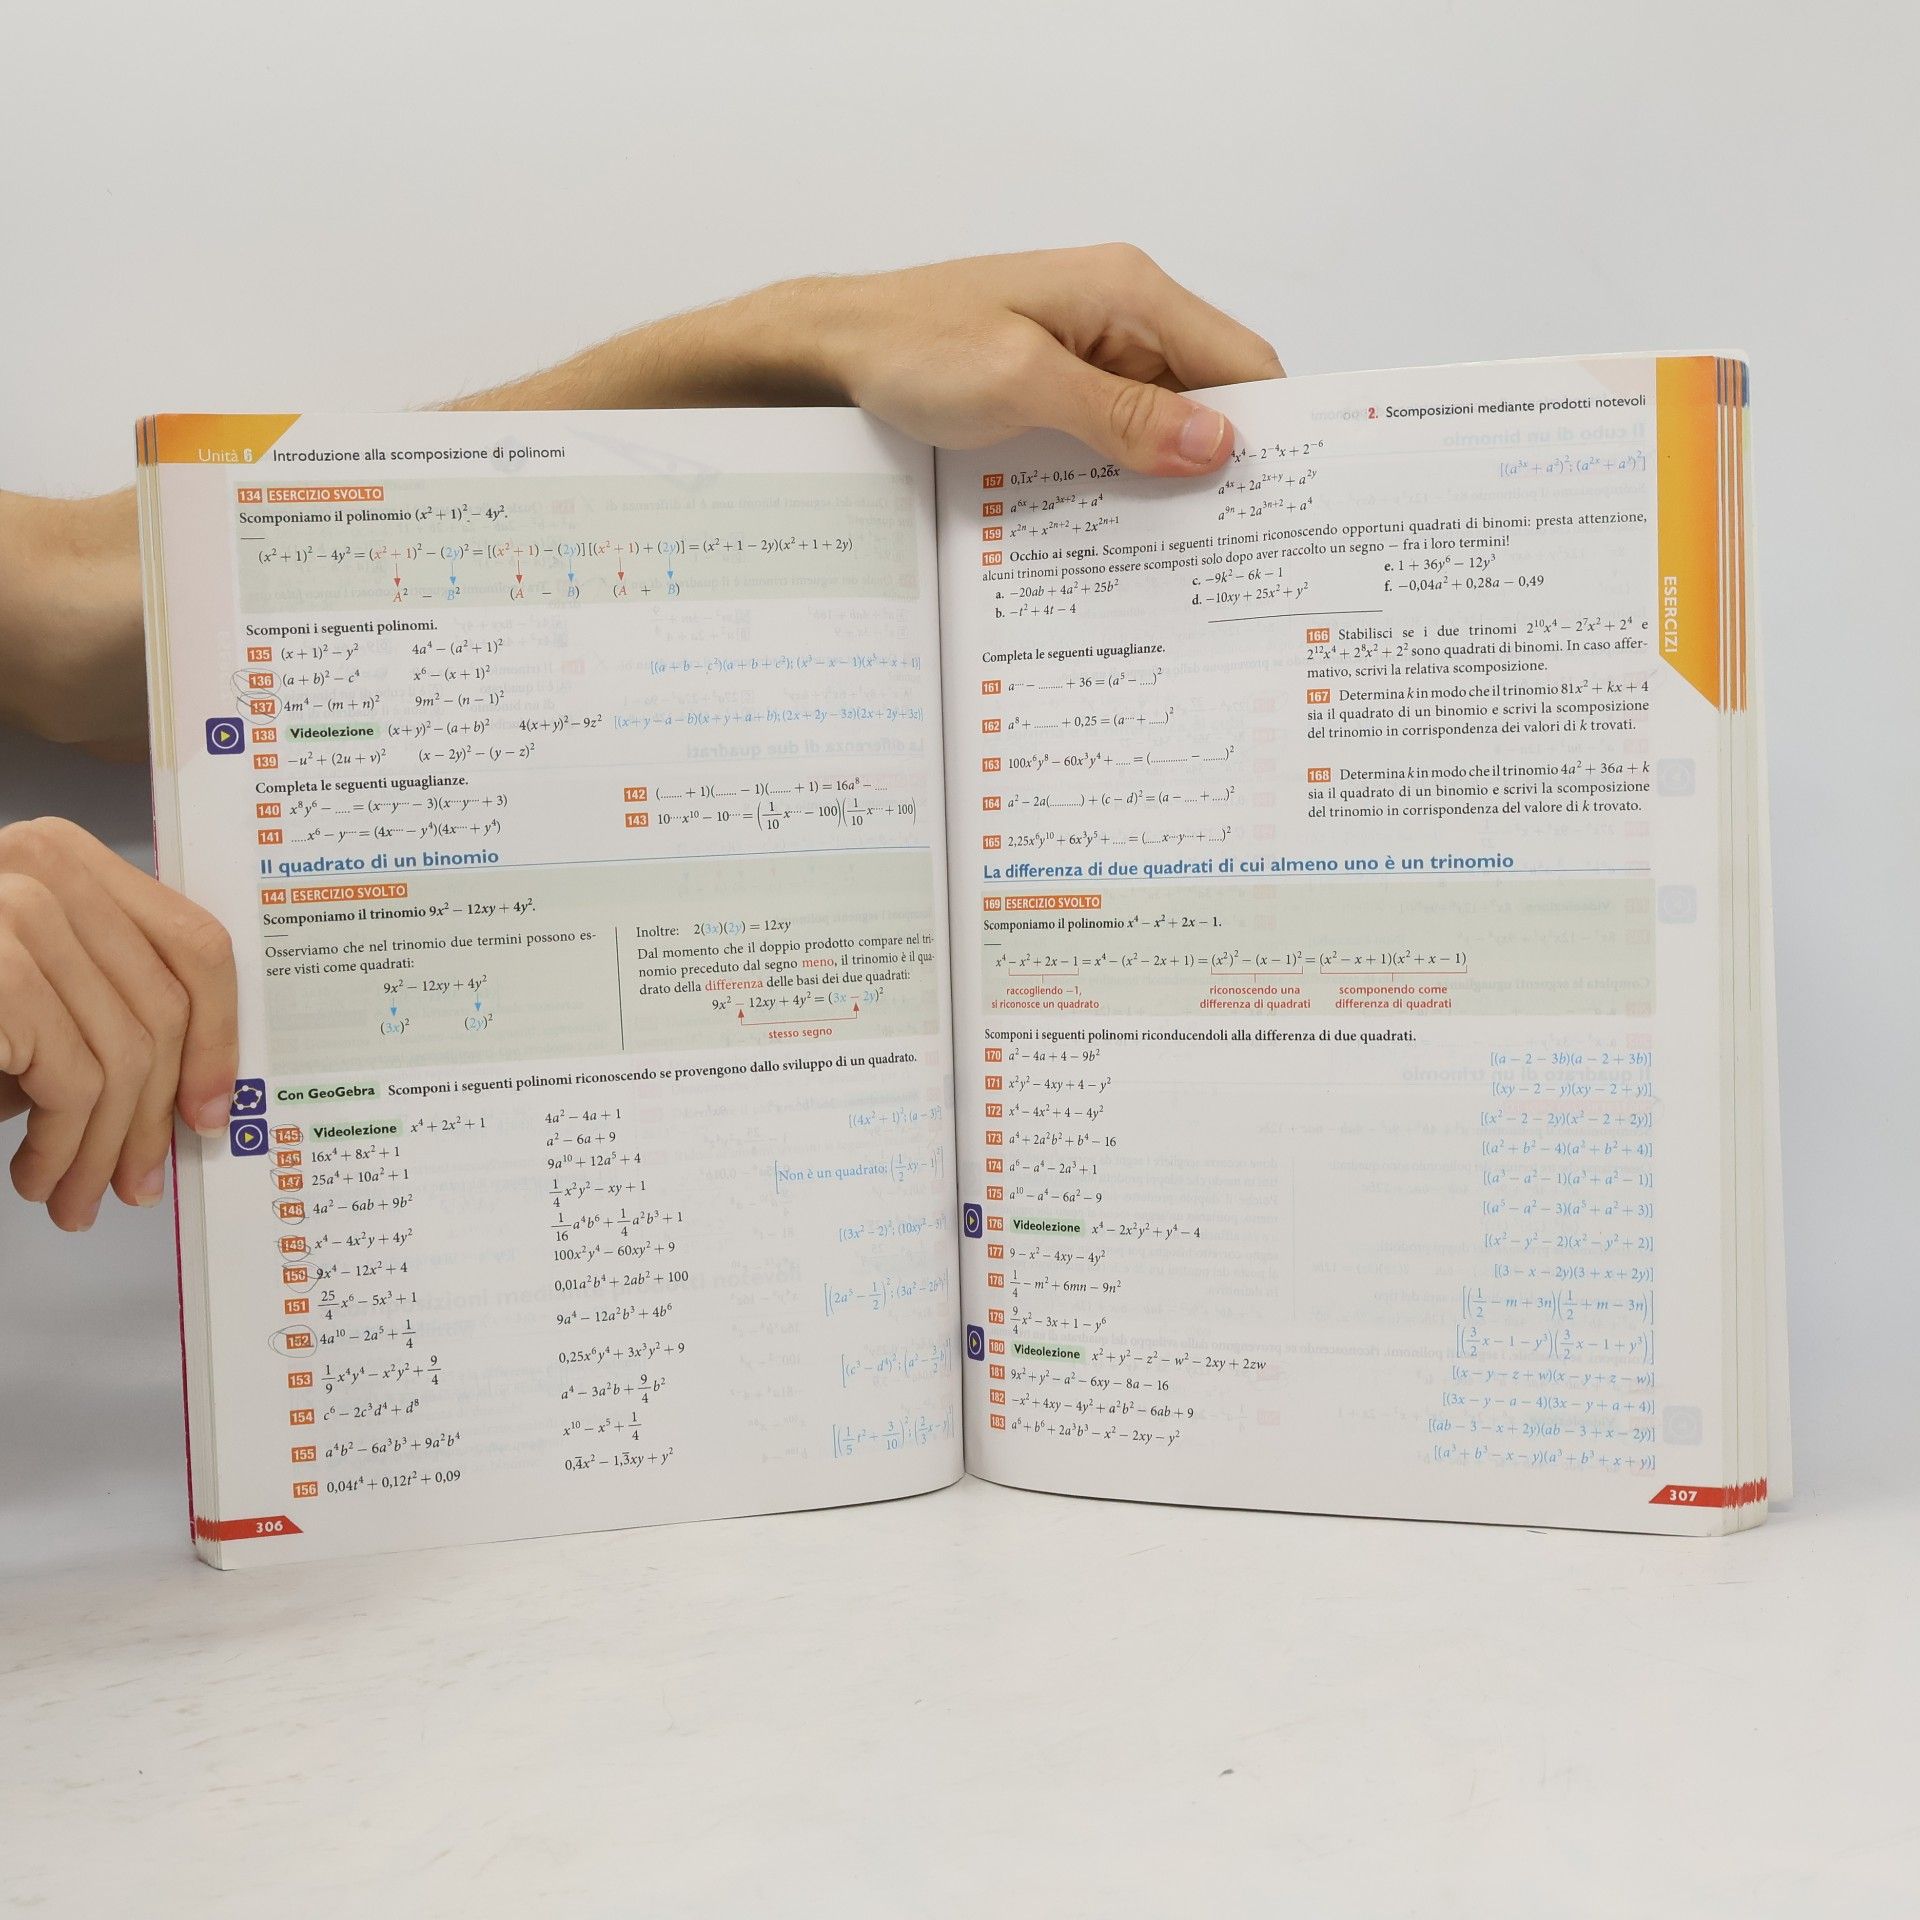 Unità 6 Introduzione alla scomposizione di polinomi
134 ESERCIZIO SVOLTO
Scomponiamo il polinomio (x² + 1)² − 4y².
(x² + 1)² − 4y² = (x² + 1)² − (2y)² = [(x² + 1) − (2y)] [(x² + 1) + (2y)] = (x² + 1 − 2y)(x² + 1 + 2y)
A² − B² (A − B) (A + B)
Scomponi i seguenti polinomi.
135 (x + 1)² − y² 4a⁴ − (a² + 1)²
136 (a + b)² − c⁴ x⁶ − (x + 1)² [(a + b − c²)(a + b + c²); (x³ − x − 1)(x³ + x + 1)]
137 4m⁴ − (m + n)² 9m² − (n − 1)²
138 Videolezione (x + y)² − (a + b)² 4(x + y)² − 9z² [(x + y − a − b)(x + y + a + b); (2x + 2y − 3z)(2x + 2y + 3z)]
139 −u² + (2u + v)² (x − 2y)² − (y − z)²
Completa le seguenti uguaglianze.
140 x⁸y⁶ − ..... = (x····y···· − 3)(x····y···· + 3)
141 .....x⁶ − y···· = (4x···· − y⁴)(4x···· + y⁴)
142 (........ + 1)(........ − 1)(........ + 1) = 16a⁸ − .....
143 10····x¹⁰ − 10···· = (1/10 x···· − 100)(1/10 x···· + 100)
Il quadrato di un binomio
144 ESERCIZIO SVOLTO
Scomponiamo il trinomio 9x² − 12xy + 4y².
Osserviamo che nel trinomio due termini possono es-
sere visti come quadrati:
9x² − 12xy + 4y²
(3x)² (2y)²
Inoltre: 2(3x)(2y) = 12xy
Dal momento che il doppio prodotto compare nel tri-
nomio preceduto dal segno meno, il trinomio è il qua-
drato della differenza delle basi dei due quadrati:
9x² − 12xy + 4y² = (3x − 2y)²
stesso segno
Con GeoGebra Scomponi i seguenti polinomi riconoscendo se provengono dallo sviluppo di un quadrato.
145 Videolezione x⁴ + 2x² + 1 4a² − 4a + 1
146 16x⁴ + 8x² + 1 a² − 6a + 9 [(4x² + 1)²; (a − 3)²]
147 25a⁴ + 10a² + 1 9a¹⁰ + 12a⁵ + 4
148 4a² − 6ab + 9b² 1/4 x²y² − xy + 1 [Non è un quadrato; (1/2 xy − 1)²]
149 x⁴ − 4x²y + 4y² 1/16 a⁴b⁶ + 1/4 a²b³ + 1
150 9x⁴ − 12x² + 4 100x²y⁴ − 60xy² + 9 [(3x² − 2)²; (10xy² − 3)²]
151 25/4 x⁶ − 5x³ + 1 0,01a²b⁴ + 2ab² + 100
152 4a¹⁰ − 2a⁵ + 1/4 9a⁴ − 12a²b³ + 4b⁶ [(2a⁵ − 1/2)²; (3a² − 2b³)²]
153 1/9 x⁴y⁴ − x²y² + 9/4 0,25x⁶y⁴ + 3x³y² + 9
154 c⁶ − 2c³d⁴ + d⁸ a⁴ − 3a²b + 9/4 b² [(c³ − d⁴)²; (a² − 3/2 b)²]
155 a⁴b² − 6a³b³ + 9a²b⁴ x¹⁰ − x⁵ + 1/4
156 0,04t⁴ + 0,12t² + 0,09 0,4̅x² − 1,3̅xy + y² [(1/5 t² + 3/10)²; (2/3 x − y)²]
306
2. Scomposizioni mediante prodotti notevoli
157 0,1̅x² + 0,16 − 0,26̅x x⁴ − 2⁻⁴x + 2⁻⁶
158 a⁶ˣ + 2a³ˣ⁺² + a⁴ a⁴ˣ + 2a²ˣ⁺ʸ + a²ʸ [(a³ˣ + a²)²; (a²ˣ + aʸ)²]
159 x²ⁿ + x²ⁿ⁺² + 2x²ⁿ⁺¹ a⁹ⁿ + 2a³ⁿ⁺² + a⁴
160 Occhio ai segni. Scomponi i seguenti trinomi riconoscendo opportuni quadrati di binomi: presta attenzione,
alcuni trinomi possono essere scomposti solo dopo aver raccolto un segno − fra i loro termini!
a. −20ab + 4a² + 25b² c. −9k² − 6k − 1 e. 1 + 36y⁶ − 12y³
b. −t² + 4t − 4 d. −10xy + 25x² + y² f. −0,04a² + 0,28a − 0,49
Completa le seguenti uguaglianze.
161 a···· − ......... + 36 = (a⁵ − ....)²
162 a⁸ + ......... + 0,25 = (a···· + ......)²
163 100x⁶y⁸ − 60x³y⁴ + ..... = (.............. − ........)²
164 a² − 2a(..........) + (c − d)² = (a − .... + ....)²
165 2,25x⁶y¹⁰ + 6x³y⁵ + ..... = (.....x····y···· + ....)²
166 Stabilisci se i due trinomi 2¹⁰x⁴ − 2⁷x² + 2⁴ e
2¹²x⁴ + 2⁸x² + 2² sono quadrati di binomi. In caso affer-
mativo, scrivi la relativa scomposizione.
167 Determina k in modo che il trinomio 81x² + kx + 4
sia il quadrato di un binomio e scrivi la scomposizione
del trinomio in corrispondenza dei valori di k trovati.
168 Determina k in modo che il trinomio 4a² + 36a + k
sia il quadrato di un binomio e scrivi la scomposizione
del trinomio in corrispondenza del valore di k trovato.
La differenza di due quadrati di cui almeno uno è un trinomio
169 ESERCIZIO SVOLTO
Scomponiamo il polinomio x⁴ − x² + 2x − 1.
x⁴ − x² + 2x − 1 = x⁴ − (x² − 2x + 1) = (x²)² − (x − 1)² = (x² − x + 1)(x² + x − 1)
raccogliendo −1, riconoscendo una scomponendo come
si riconosce un quadrato differenza di quadrati differenza di quadrati
Scomponi i seguenti polinomi riconducendoli alla differenza di due quadrati.
170 a² − 4a + 4 − 9b² [(a − 2 − 3b)(a − 2 + 3b)]
171 x²y² − 4xy + 4 − y² [(xy − 2 − y)(xy − 2 + y)]
172 x⁴ − 4x² + 4 − 4y² [(x² − 2 − 2y)(x² − 2 + 2y)]
173 a⁴ + 2a²b² + b⁴ − 16 [(a² + b² − 4)(a² + b² + 4)]
174 a⁶ − a⁴ − 2a³ + 1 [(a³ − a² − 1)(a³ + a² − 1)]
175 a¹⁰ − a⁴ − 6a² − 9 [(a⁵ − a² − 3)(a⁵ + a² + 3)]
176 Videolezione x⁴ − 2x²y² + y⁴ − 4 [(x² − y² − 2)(x² − y² + 2)]
177 9 − x² − 4xy − 4y² [(3 − x − 2y)(3 + x + 2y)]
178 1/4 − m² + 6mn − 9n² [(1/2 − m + 3n)(1/2 + m − 3n)]
179 9/4 x² − 3x + 1 − y⁶ [(3/2 x − 1 − y³)(3/2 x − 1 + y³)]
180 Videolezione x² + y² − z² − w² − 2xy + 2zw [(x − y − z + w)(x − y + z − w)]
181 9x² + y² − a² − 6xy − 8a − 16 [(3x − y − a − 4)(3x − y + a + 4)]
182 −x² + 4xy − 4y² + a²b² − 6ab + 9 [(ab − 3 − x + 2y)(ab − 3 + x − 2y)]
183 a⁶ + b⁶ + 2a³b³ − x² − 2xy − y² [(a³ + b³ − x − y)(a³ + b³ + x + y)]
307
ESERCIZI